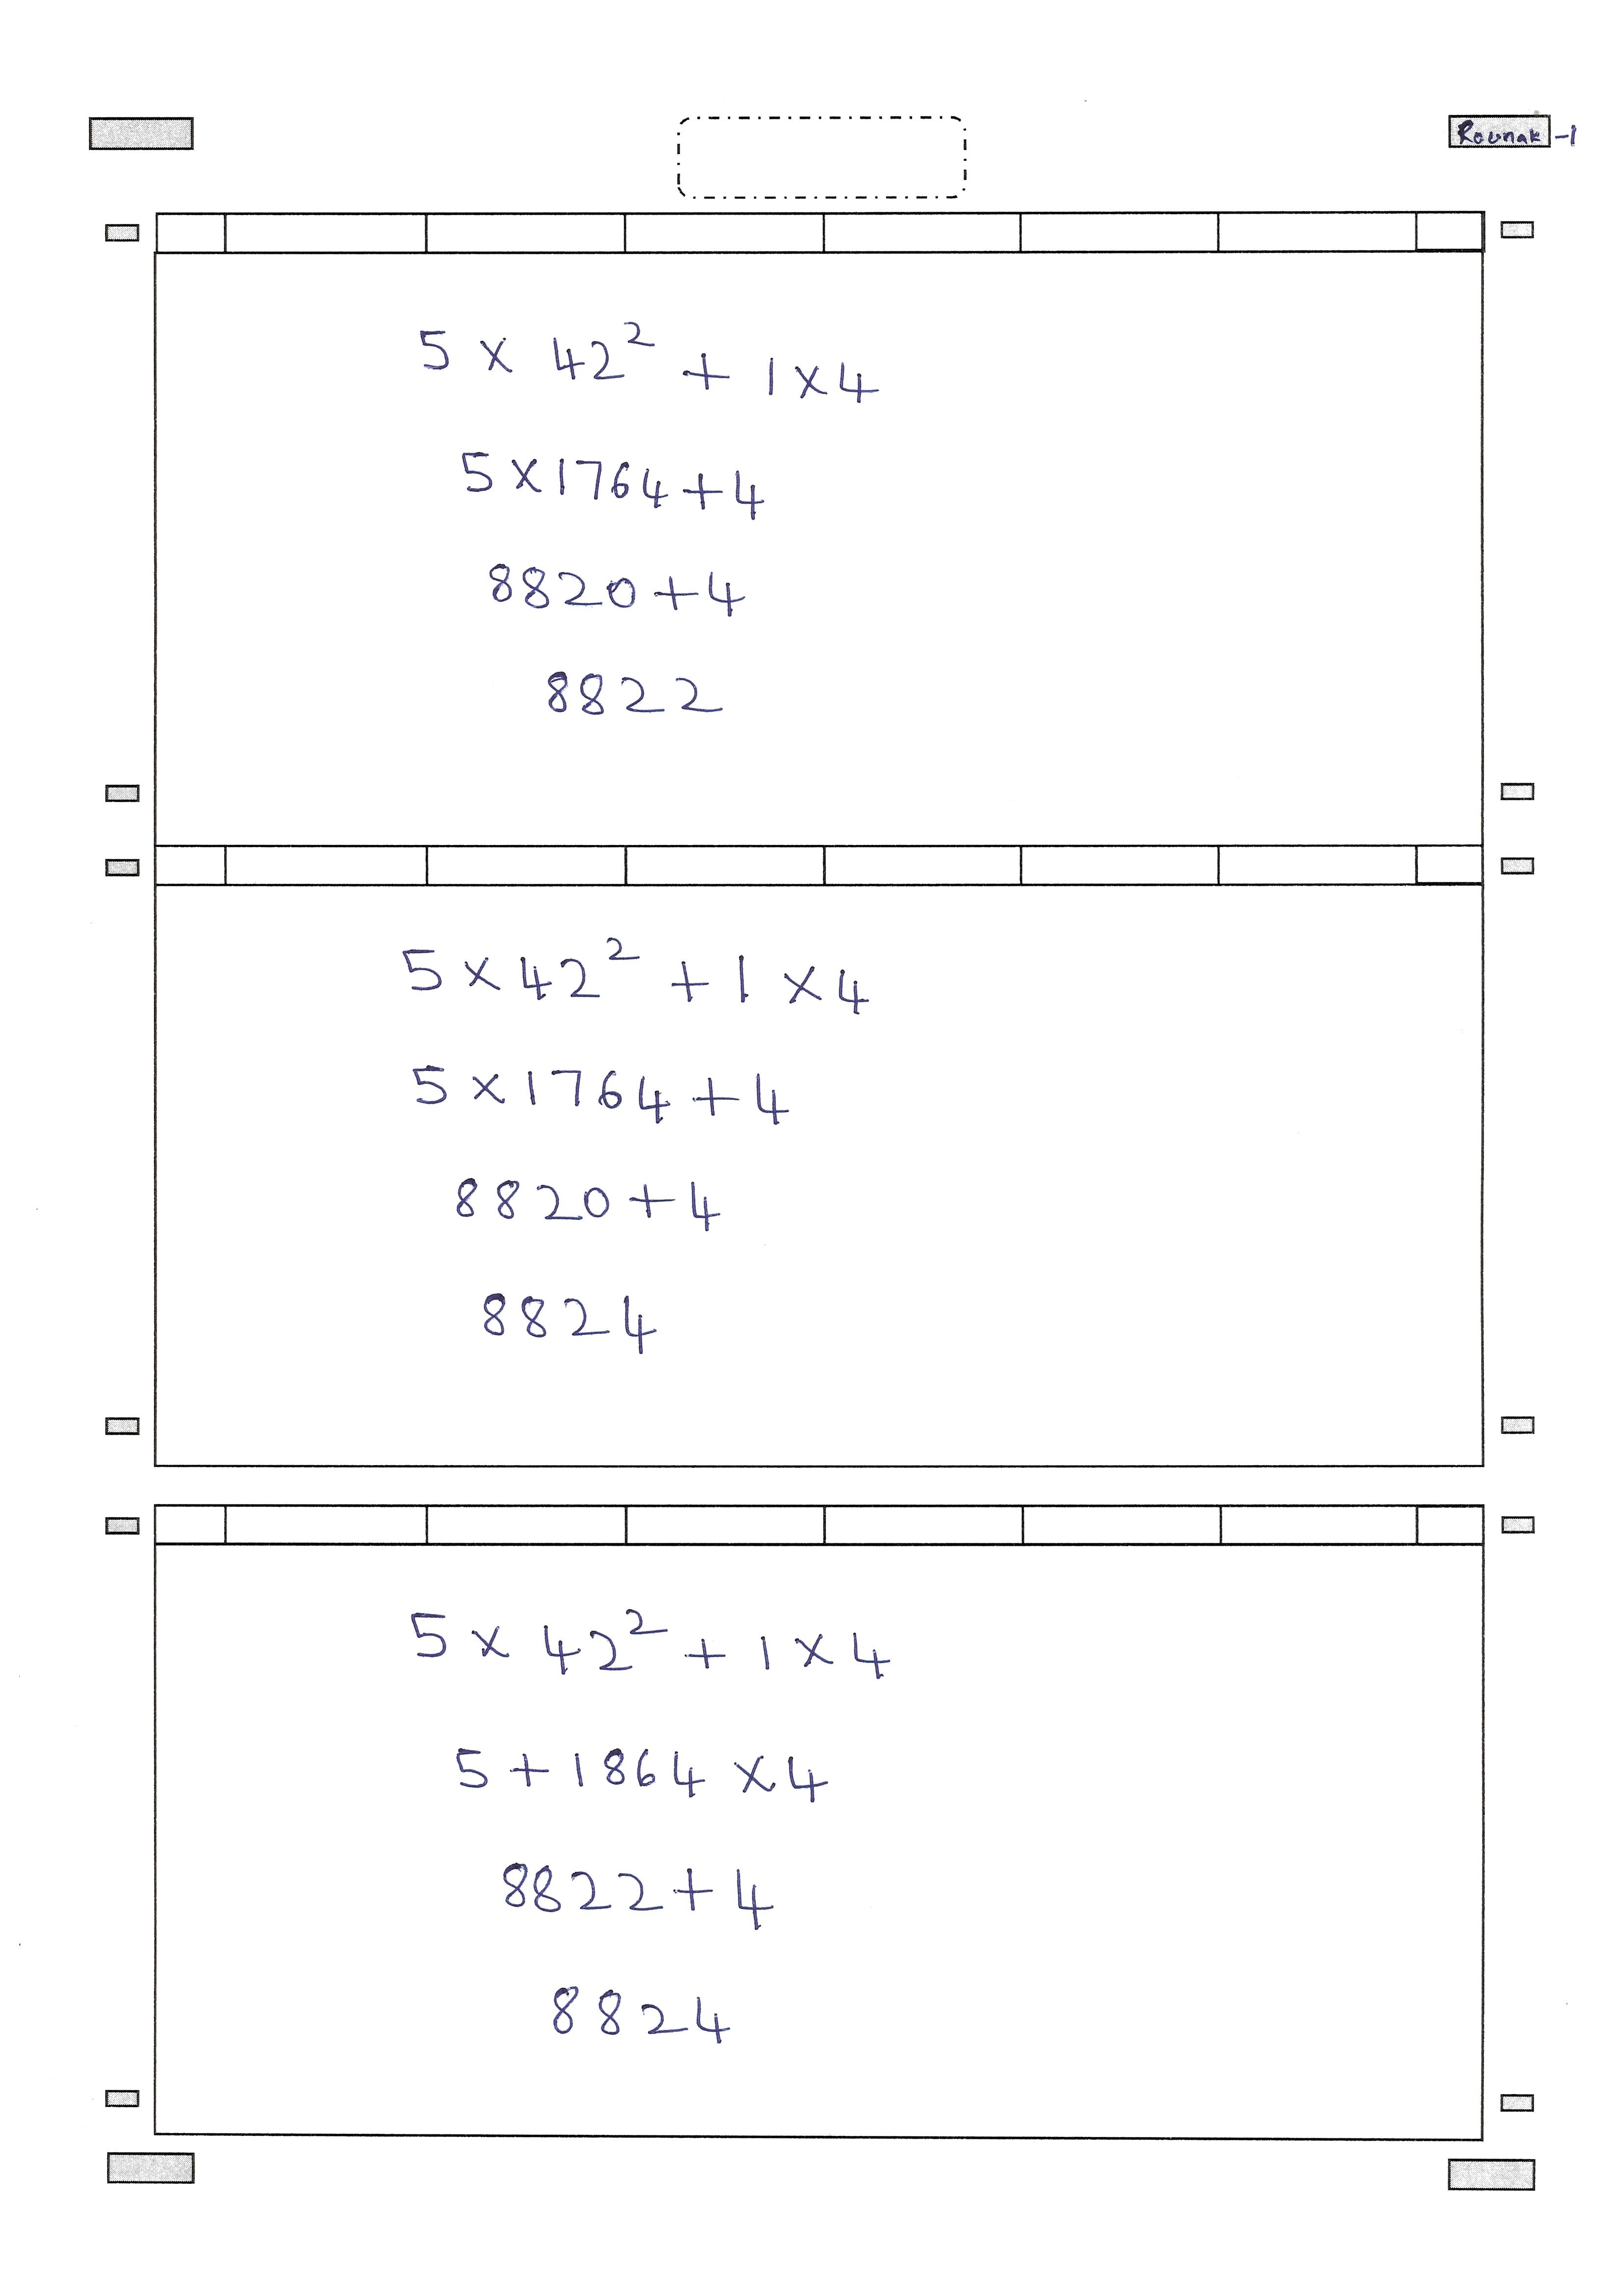 Rounak -1
5 × 42² + 1 × 4
5 × 1764 + 4
8820 + 4
8822
5 × 42² + 1 × 4
5 × 1764 + 4
8820 + 4
8824
5 × 42² + 1 × 4
5 + 1864 × 4
8822 + 4
8824